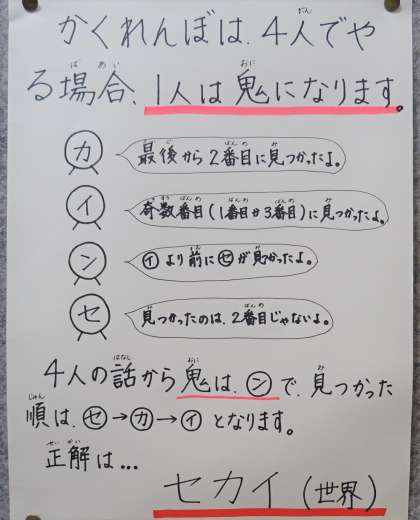 かくれんぼは、4人でや
る場合、1人は鬼になります。
カ 最後から2番目に見つかったよ。
イ 奇数番目(1番目か3番目)に見つかったよ。
ン ㋑より前に㋝が見つかったよ。
セ 見つかったのは、2番目じゃないよ。
4人の話から鬼は、ンで、見つかった
順は、㋝→㋕→㋑となります。
正解は…
セカイ(世界)